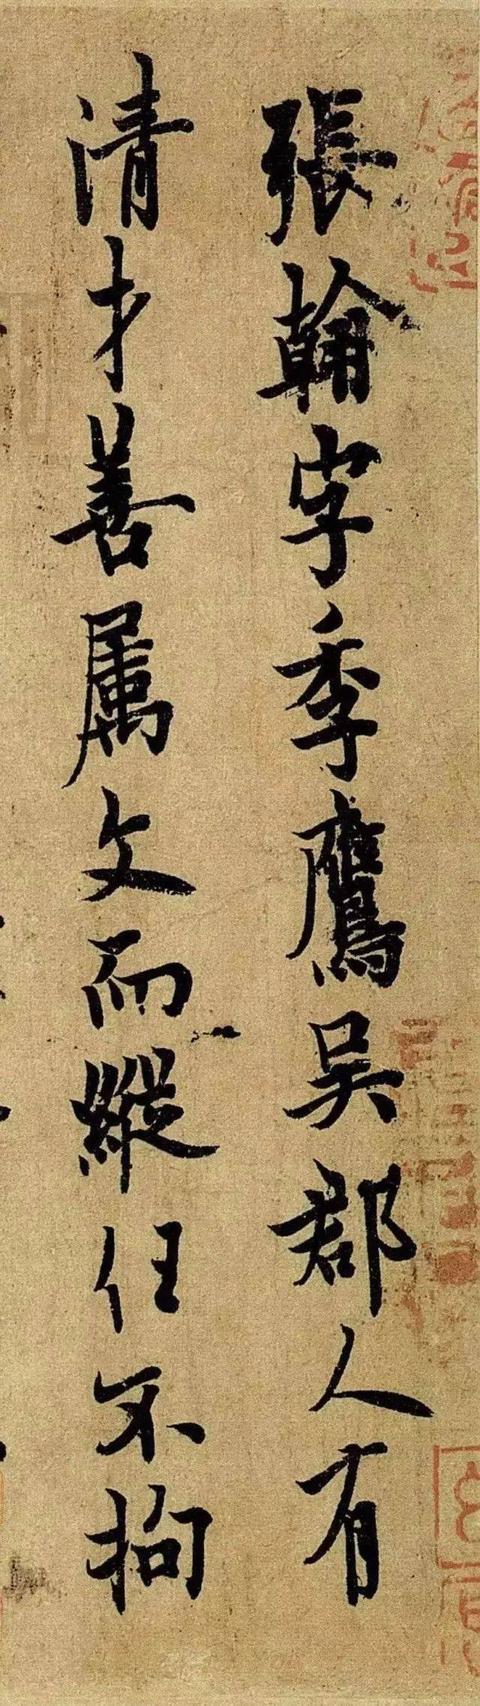 張翰字季鷹吳郡人有
清才善属文而縱任不拘